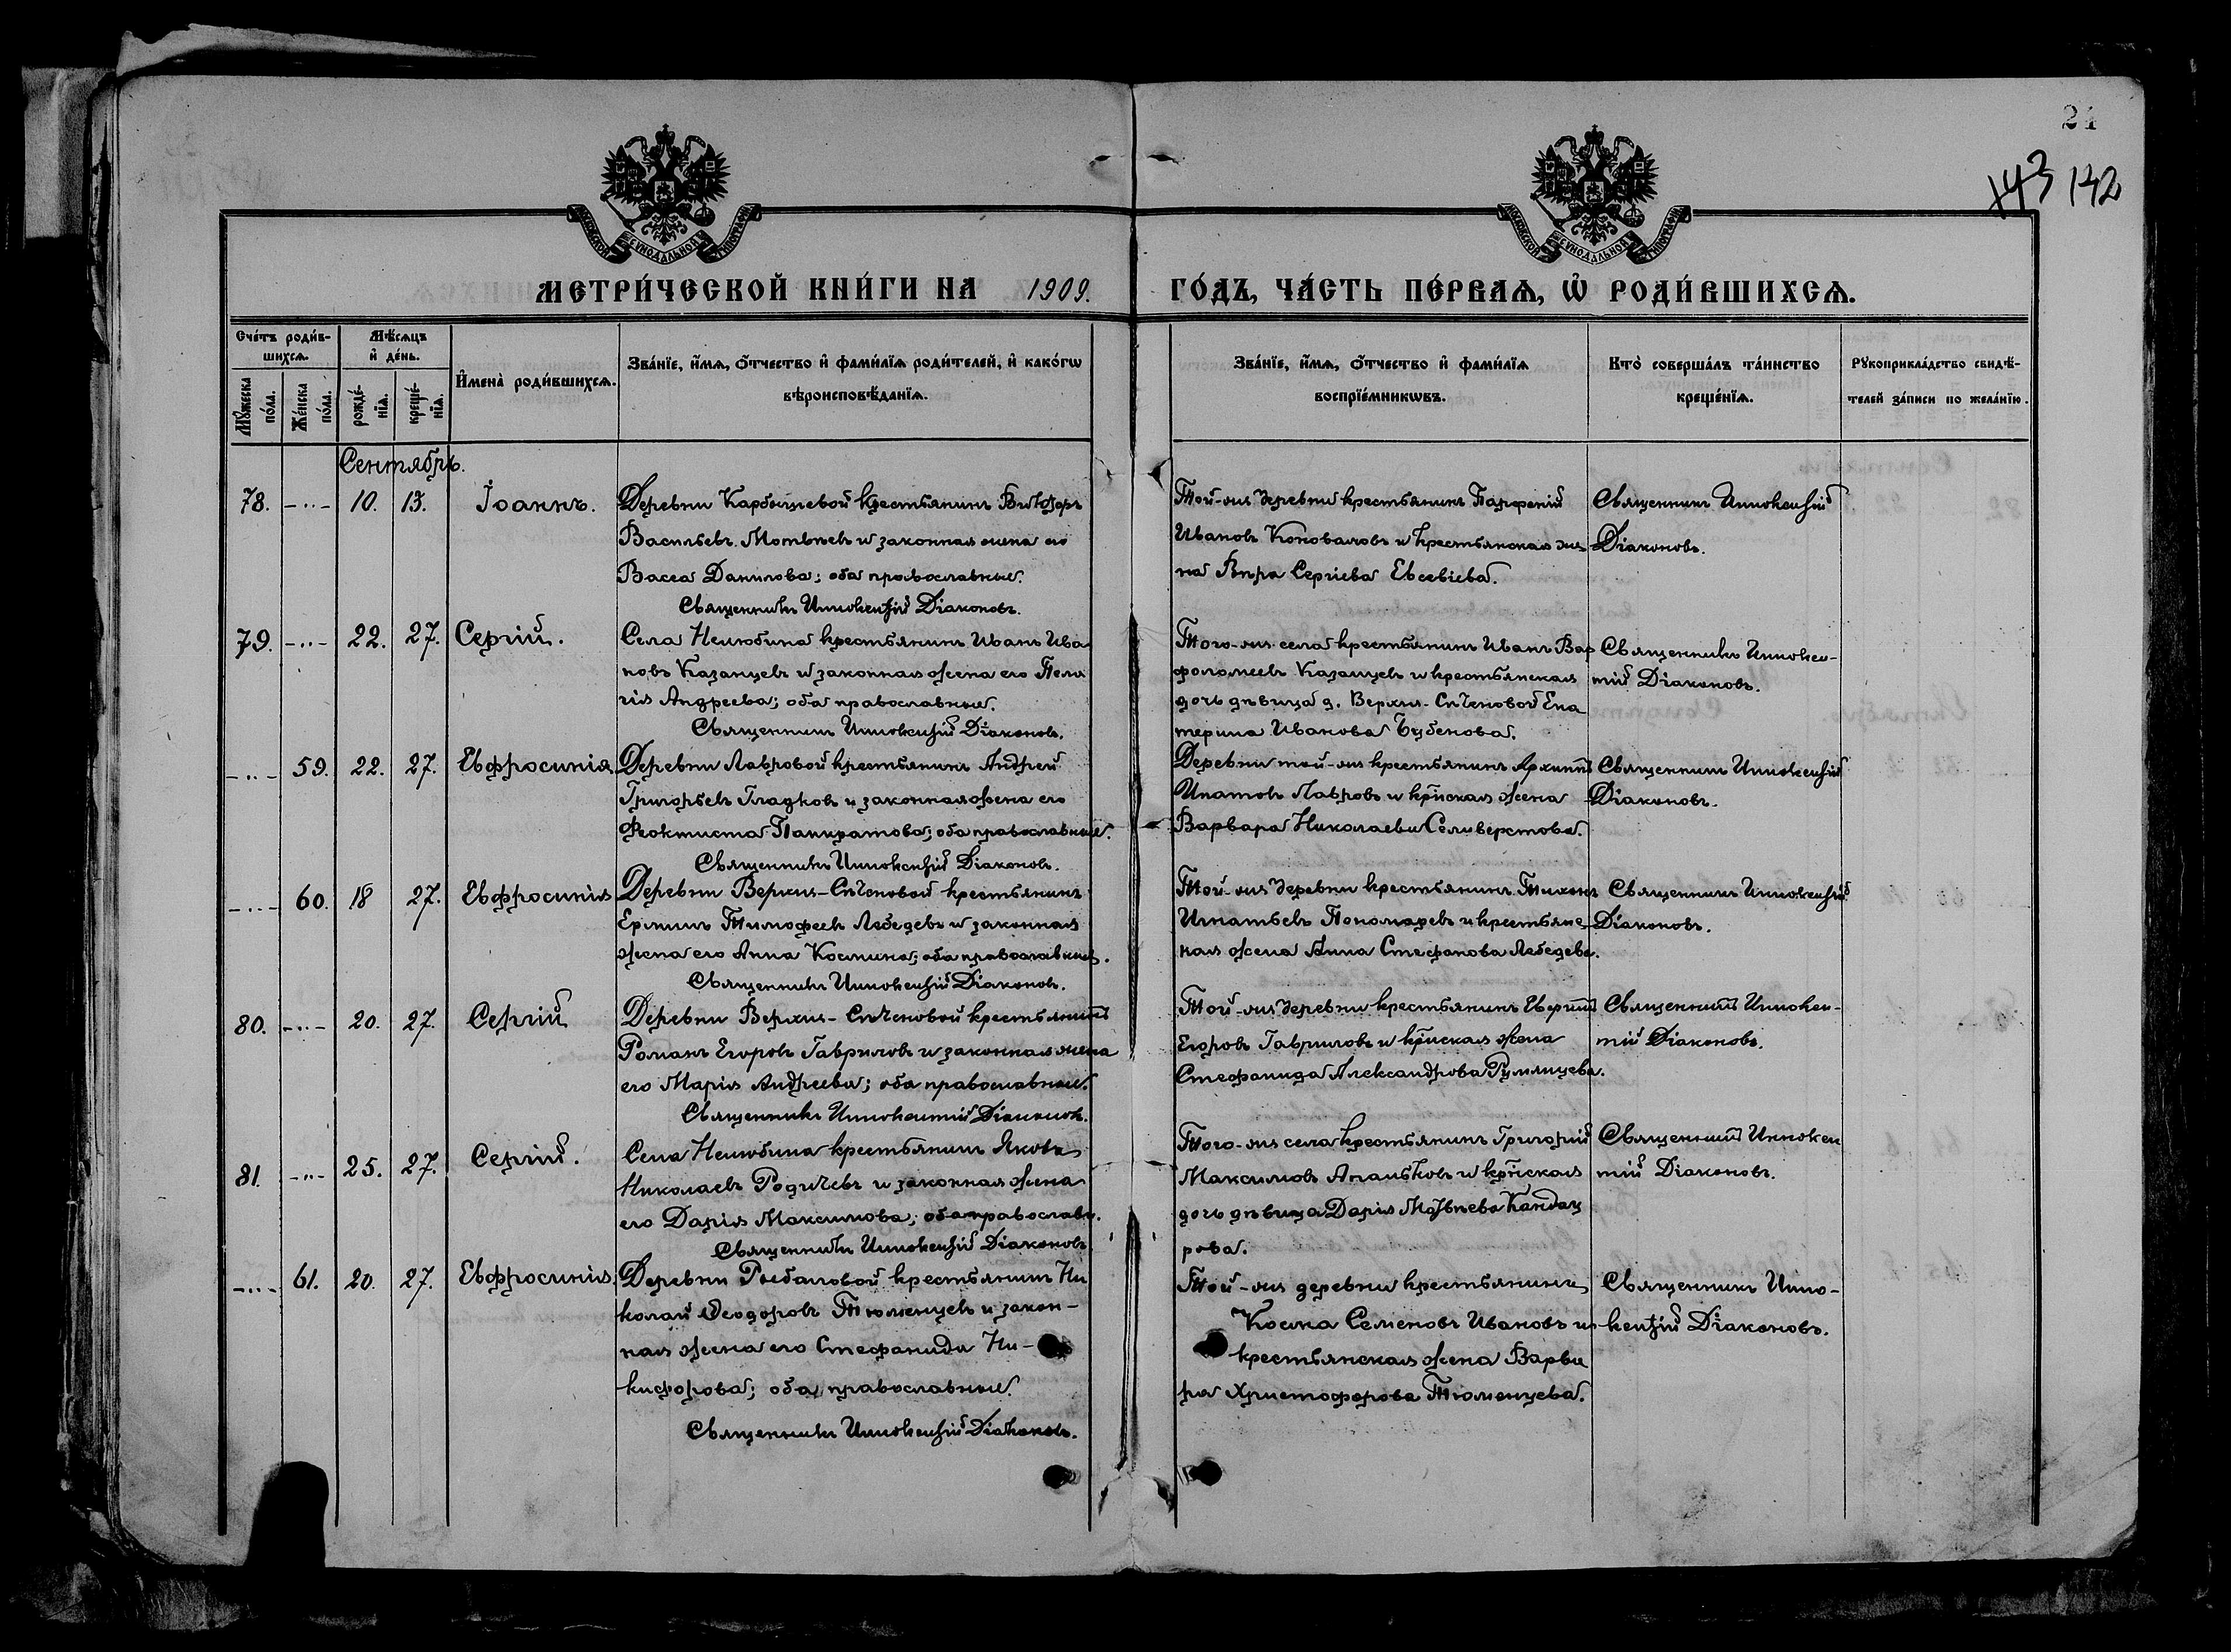 21
143 132
МОСКОВСКОЙ СѴНОДАЛЬНОЙ ТИПОГРАФІИ
МОСКОВСКОЙ СѴНОДАЛЬНОЙ ТИПОГРАФІИ
МЕТРИ́ЧЕСКОЙ КНИ́ГИ НА 1909. ГО́ДЪ, ЧА́СТЬ ПЕ́РВАѦ, Ѽ РОДИ́ВШИХСѦ.
Сче́тъ роди́в-
шихсѧ.
Мꙋ́жеска по́ла.
Же́нска по́ла.
Мѣ́сѧцъ
и҆ де́нь.
рожде́-
нїѧ.
креще́-
нїѧ.
И҆мена̀ роди́вшихсѧ.
Зва́нїе, и҆́мѧ, ѻ҆́тчество и҆ фами́лїѧ роди́телей, и҆ како́гѡ
вѣроисповѣ́данїѧ.
Зва́нїе, и҆́мѧ, ѻ҆́тчество и҆ фами́лїѧ
воспрїе́мникѡвъ.
Кто̀ соверша́лъ та́инство
креще́нїѧ.
Рꙋкоприкла́дство свидѣ́-
телей за́писи по жела́нїю.
Сентябрь.
78. -..- 10. 13. Іоаннъ.
Деревни Карбышевой крестьянинъ
Васильевъ Мотѣевъ и законная жена его
Васса Данилова; оба православные.
Священникъ Иннокентій Діаконовъ.
Той-же деревни крестьянинъ Парфеній
Ивановъ Коноваловъ и крестьянская же
на Вѣра Сергіева Евсевіева.
Священникъ Иннокентій
Діаконовъ.
79. -..- 22. 27. Сергій.
Села Нелюбина крестьянинъ Иванъ Ива
новъ Казанцевъ и законная жена его Пела
гія Андреева; оба православные.
Священникъ Иннокентій Діаконовъ.
Того-же села крестьянинъ Иванъ Вар
фоломеевъ Казанцевъ и крестьянская
дочь дѣвица д. Верхне-Сѣченовой Ека
терина Иванова Бубенова.
Священникъ Иннокен-
тій Діаконовъ.
-..- 59. 22. 27. Евфросинія.
Деревни Лавровой крестьянинъ Андрей
Григорьевъ Гладковъ и законная жена его
Феоктиста Панкратова; оба православные.
Священникъ Иннокентій Діаконовъ.
Деревни той-же крестьянинъ Архипъ
Ипатовъ Лавровъ и кр҃нская жена
Варвара Николаева Селиверстова.
Священникъ Иннокентій
Діаконовъ.
-..- 60. 18 27. Евфросинія
Деревни Верхне-Сѣченовой крестьянинъ
Ермилъ Тимофеевъ Лебедевъ и законная
жена его Анна Космина; оба православные.
Священникъ Иннокентій Діаконовъ.
Той-же деревни крестьянинъ Тихонъ
Игнатьевъ Пономаревъ и крестьянс
кая жена Анна Стефанова Лебедева.
Священникъ Иннокентій
Діаконовъ.
80. -..- 20. 27. Сергій
Деревни Верхне-Сѣченовой крестьянинъ
Романъ Егоровъ Гавриловъ и законная жена
его Марія Андреева; оба православные.
Священникъ Иннокентій Діаконовъ.
Той-же деревни крестьянинъ
Егоровъ Гавриловъ и кр҃нская жена
Стефанида Александрова Румянцева.
Священникъ Иннокен-
тій Діаконовъ.
81. -..- 25. 27. Сергій.
Села Нелюбина крестьянинъ Яковъ
Николаевъ Родичевъ и законная жена
его Дарія Максимова; оба православн.
Священникъ Иннокентій Діаконовъ
Того-же села крестьянинъ Григорій
Максимовъ и кр҃нская
дочь дѣвица Дарія Матвѣева Кандау
рова.
Священникъ Иннокен
тій Діаконовъ.
-..- 61. 20. 27. Евфросинія.
Деревни Рыбаловой крестьянинъ Ни
колай Ѳеодоровъ Тюменцевъ и закон-
ная жена его Стефанида Ни-
кифорова; оба православные.
Священникъ Иннокентій Діаконовъ.
Той-же деревни крестьянинъ
Косма Семеновъ Ивановъ и
крестьянская жена Варва
ра Христофорова Тюменцева.
Священникъ Инно-
кентій Діаконовъ.